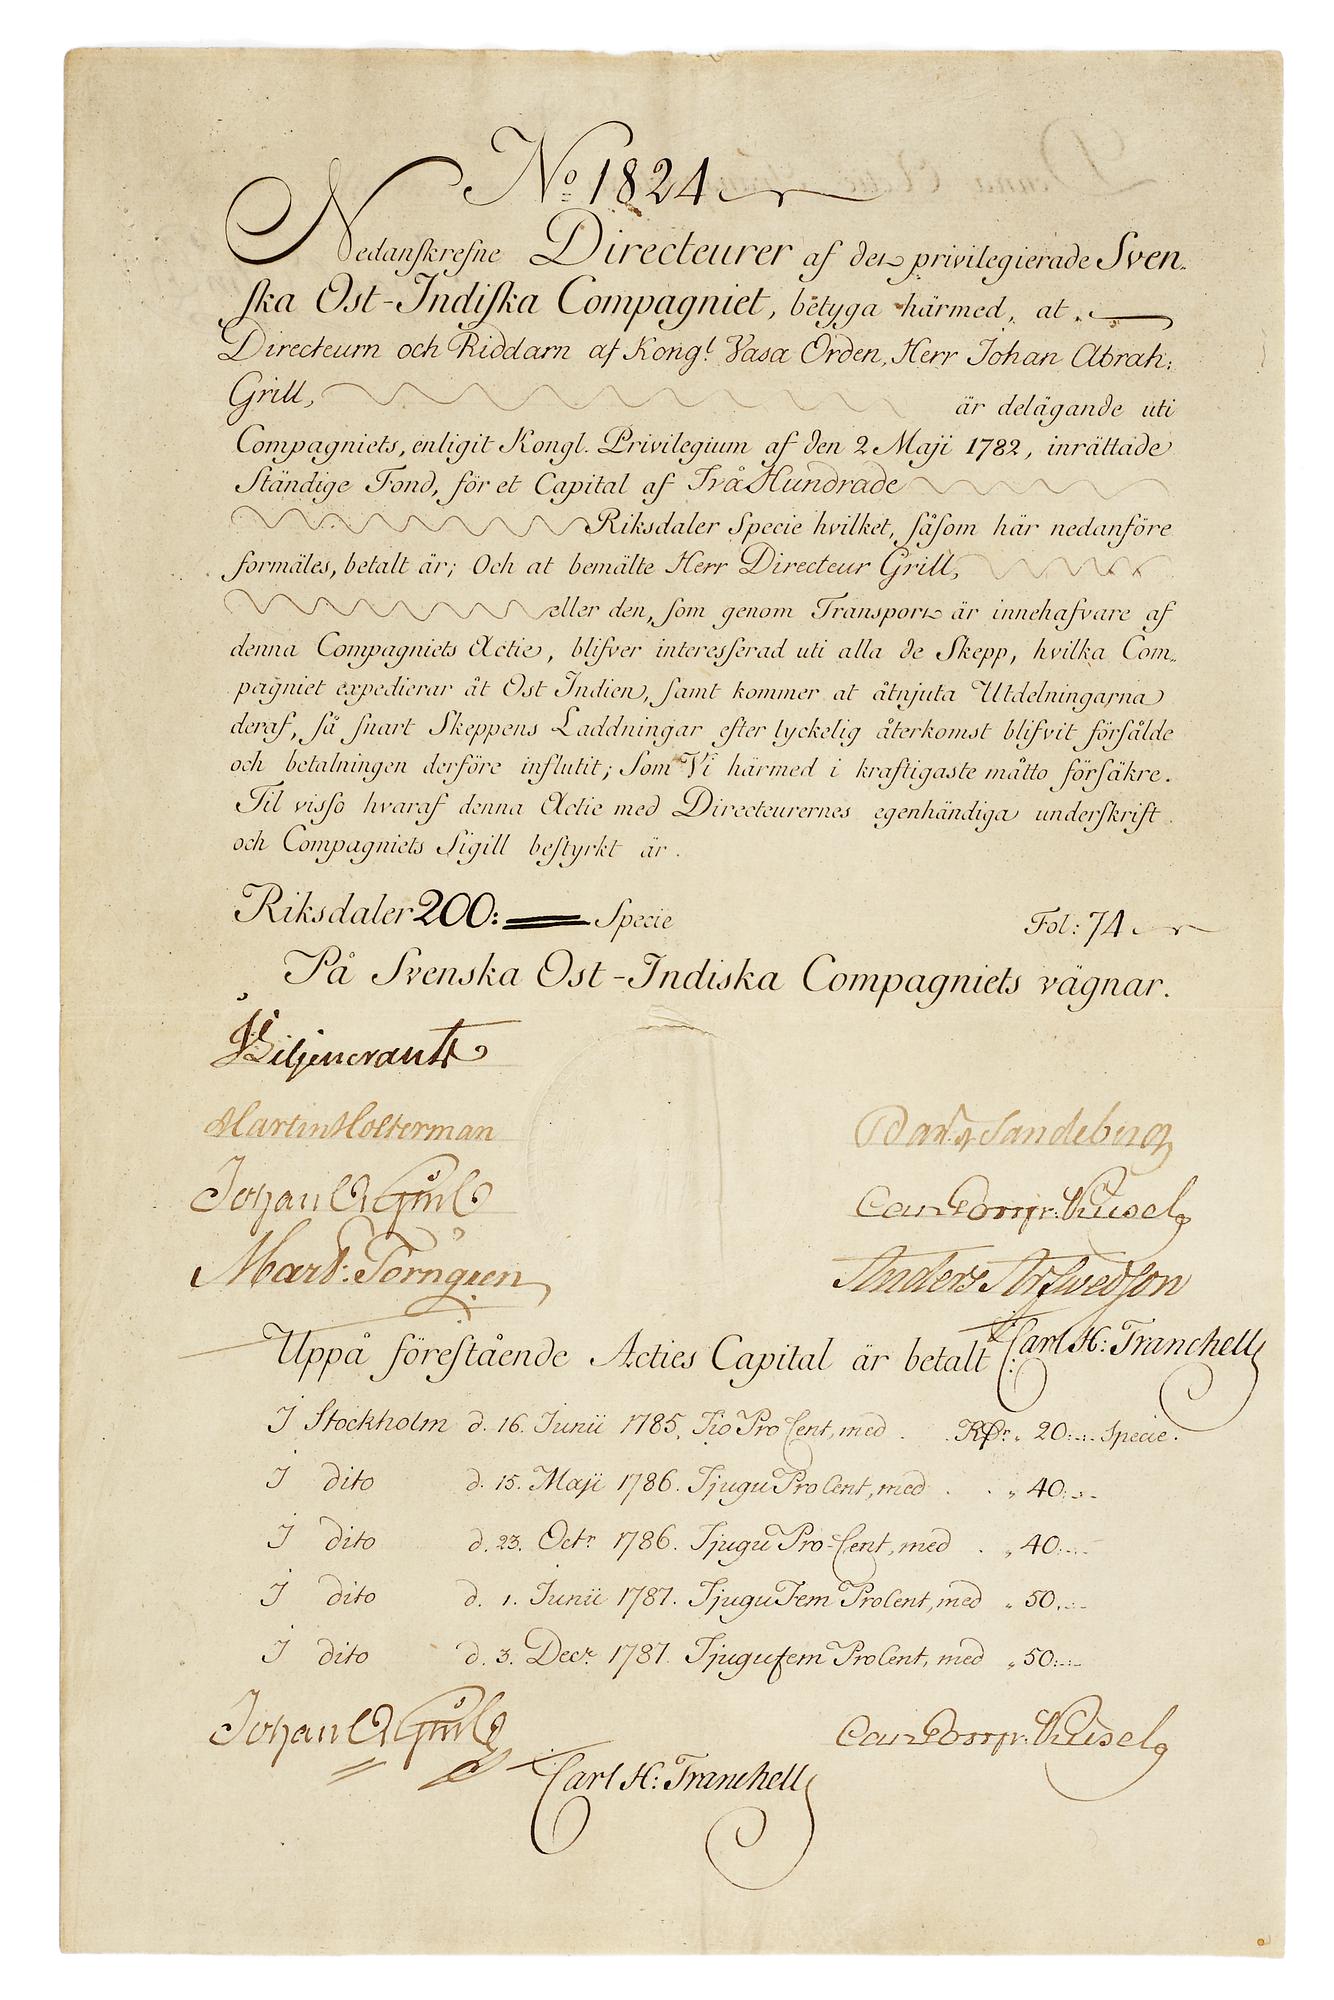 No 1824
Nedanskrefne Directeurer af den privilegierade Sven-
ska Ost-Indiska Compagniet, betyga härmed, at
Directeurn och Riddarn af Kongl. Vasa Orden, Herr Johan Abrah:
Grill, är delägande uti
Compagniets, enligit Kongl. Privilegium af den 2 Maji 1782, inrättade
Ständige Fond, för et Capital af Två Hundrade
Riksdaler Specie hvilket, såsom här nedanföre
formäles, betalt är; Och at bemälte Herr Directeur Grill,
eller den, som genom Transport är innehafvare af
denna Compagniets Actie, blifver interesserad uti alla de Skepp, hvilka Com-
pagniet expedierar åt Ost Indien, samt kommer at åtnjuta Utdelningarna
deraf, så snart Skeppens Laddningar efter lyckelig återkomst blifvit försålde
och betalningen derföre influtit; Som Vi härmed i kraftigaste måtto försäkre.
Til visso hvaraf denna Actie med Directeurernes egenhändiga underskrift
och Compagniets Sigill bestyrkt är.
Riksdaler 200: Specie Fol: 74
På Svenska Ost-Indiska Compagniets vägnar.
Liljencrantz
Martin Holterman Sandeberg
Johan A Grill Kuisel
Mart: Törngren Anders Arfwedson
Uppå förestående Acties Capital är betalt: Carl H: Tranchell
I Stockholm d. 16. Junii 1785, Tio ProCent, med Rdr. 20:- Specie.
I dito d. 15. Maji 1786. Tjugu ProCent, med " 40:-
I dito d. 23. Octr 1786. Tjugu Pro-Cent, med " 40:-
I dito d. 1. Junii 1787. Tjugu Fem ProCent, med " 50:-
I dito d. 3. Decr 1787. Tjugufem ProCent, med " 50:-
Johan A Grill Kuisel
Carl H: Tranchell